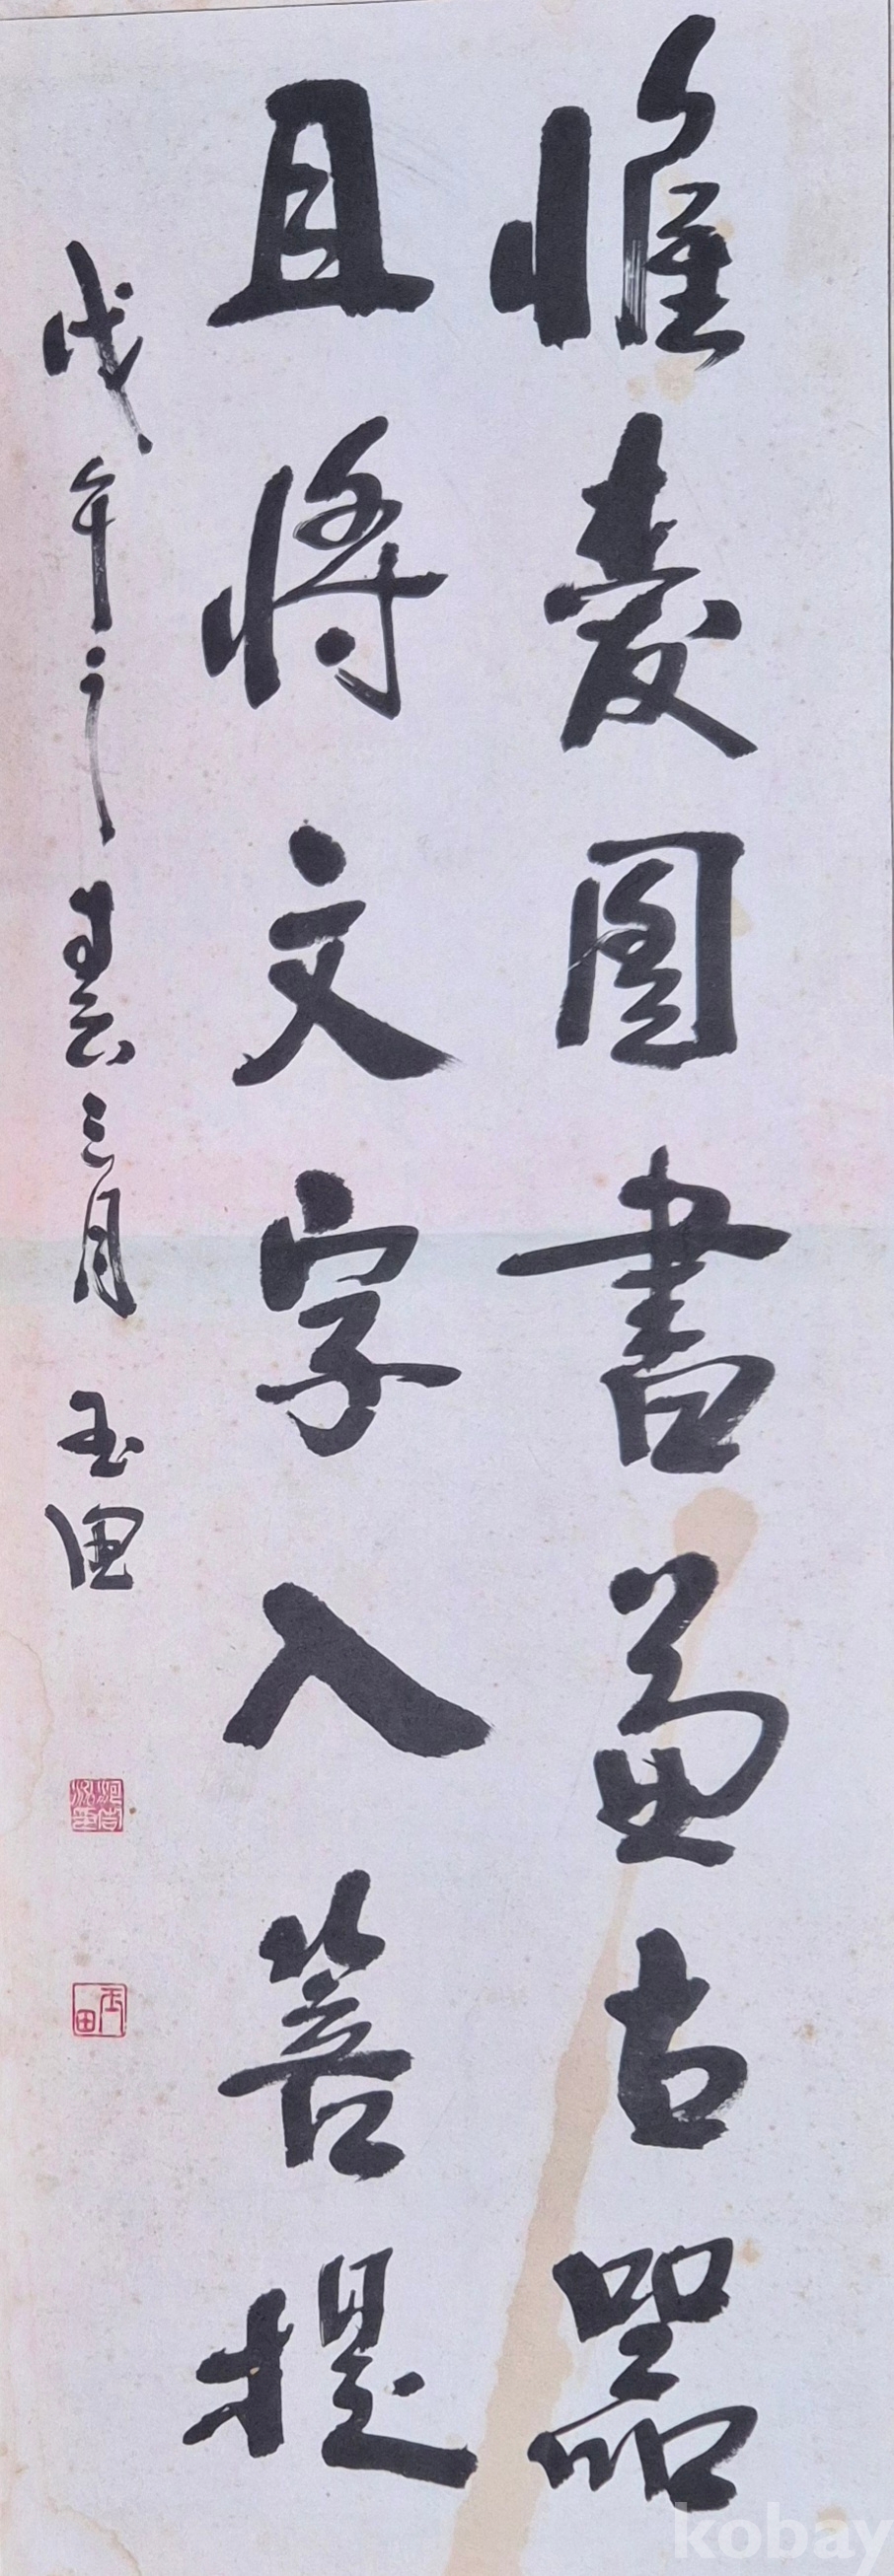 惟愛圖書兼古器
且將文字入菩提
戊午之春三月 玉田
玉田
kobay